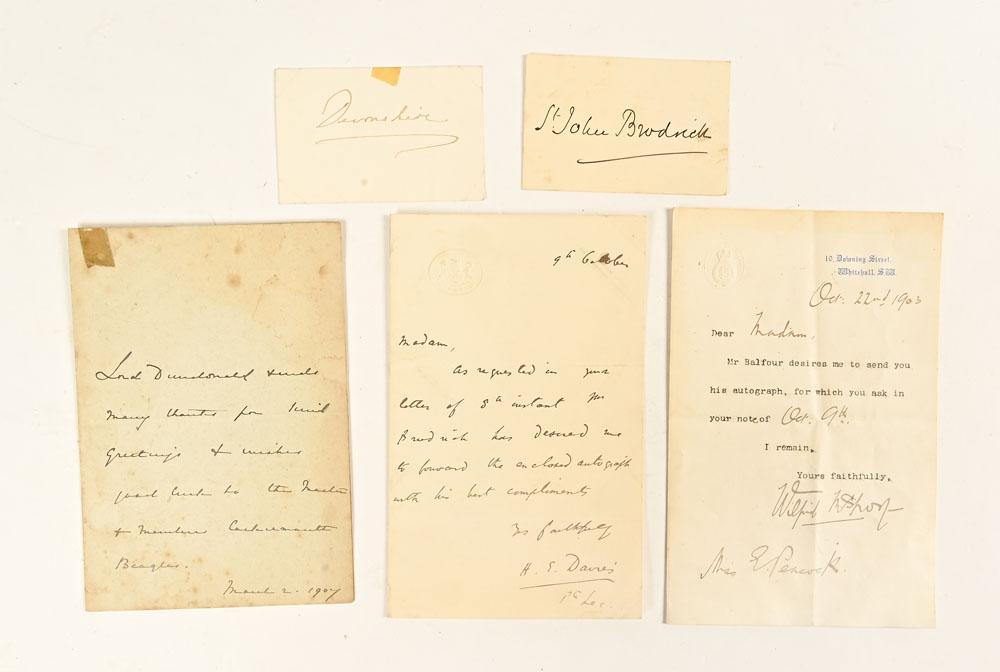 Devonshire
St. John Brodrick
Lord Dundonald sends
many thanks for kind
greetings & wishes
good luck to the Master
& Members Cockermouth
Beagles.
March 2. 1907
9th October
Madam,
As requested in your
letter of 8th instant Mr
Brodrick has desired me
to forward the enclosed autograph
with his best compliments
Yrs faithfully
H. E. Davies
10, Downing Street,
Whitehall, S.W.
Oct. 22nd 1903
Dear Madam,
Mr Balfour desires me to send you
his autograph, for which you ask in
your note of Oct. 9th.
I remain,
Yours faithfully,
Wilfrid
Miss E. Peacock.